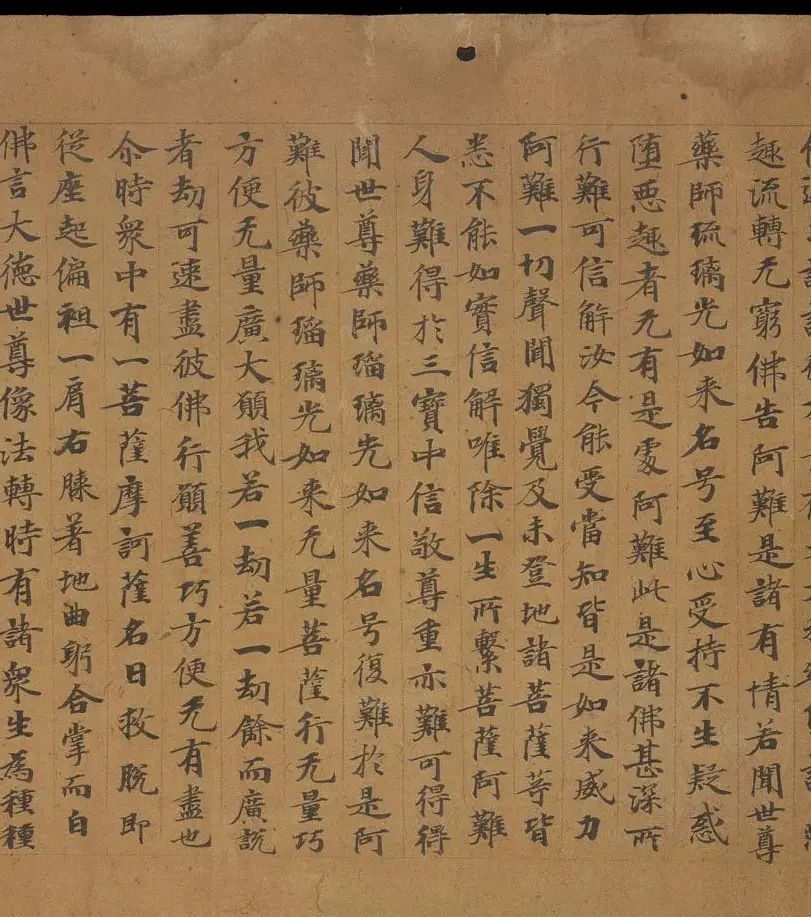 趣流轉无窮佛告阿難是諸有情若聞世尊
藥師琉璃光如来名号至心受持不生疑惑
堕惡趣者无有是處阿難此是諸佛甚深所
行難可信解汝今能受當知皆是如来威力
阿難一切聲聞獨覺及未登地諸菩薩等皆
悉不能如實信解唯除一生所繫菩薩阿難
人身難得於三寶中信敬尊重亦難可得得
聞世尊藥師瑠璃光如来名号復難於是阿
難彼藥師瑠璃光如来无量菩薩行无量巧
方便无量廣大願我若一劫若一劫餘而廣說
者劫可速盡彼佛行願善巧方便无有盡也
尒時衆中有一菩薩摩訶薩名曰救脫即
從座起偏袒一肩右膝著地曲躬合掌而白
佛言大德世尊像法轉時有諸衆生為種種